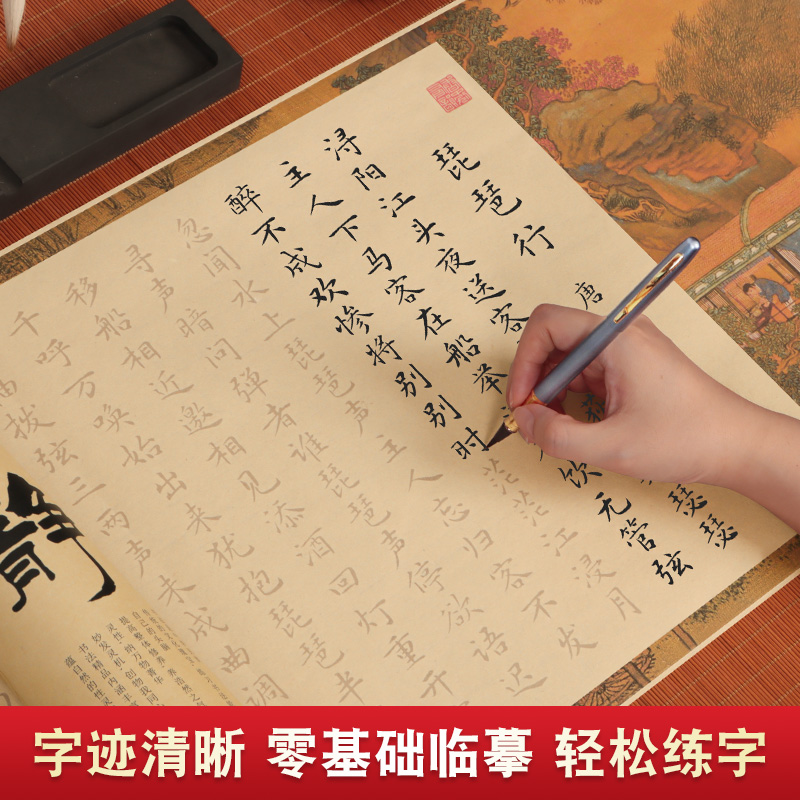 琵琶行
唐
浔阳江头夜送客
瑟瑟
主人下马客在船举
饮无管弦
醉不成欢惨将别别时茫茫江浸月
忽闻水上琵琶声主人忘归客不发
寻声暗问弹者谁琵琶声停欲语迟
移船相近邀相见添酒回灯重开
千呼万唤始出来犹抱琵琶半
拨弦三两声未成曲调
书法精品内涵丰
蕴自然的性灵
字迹清晰 零基础临摹 轻松练字